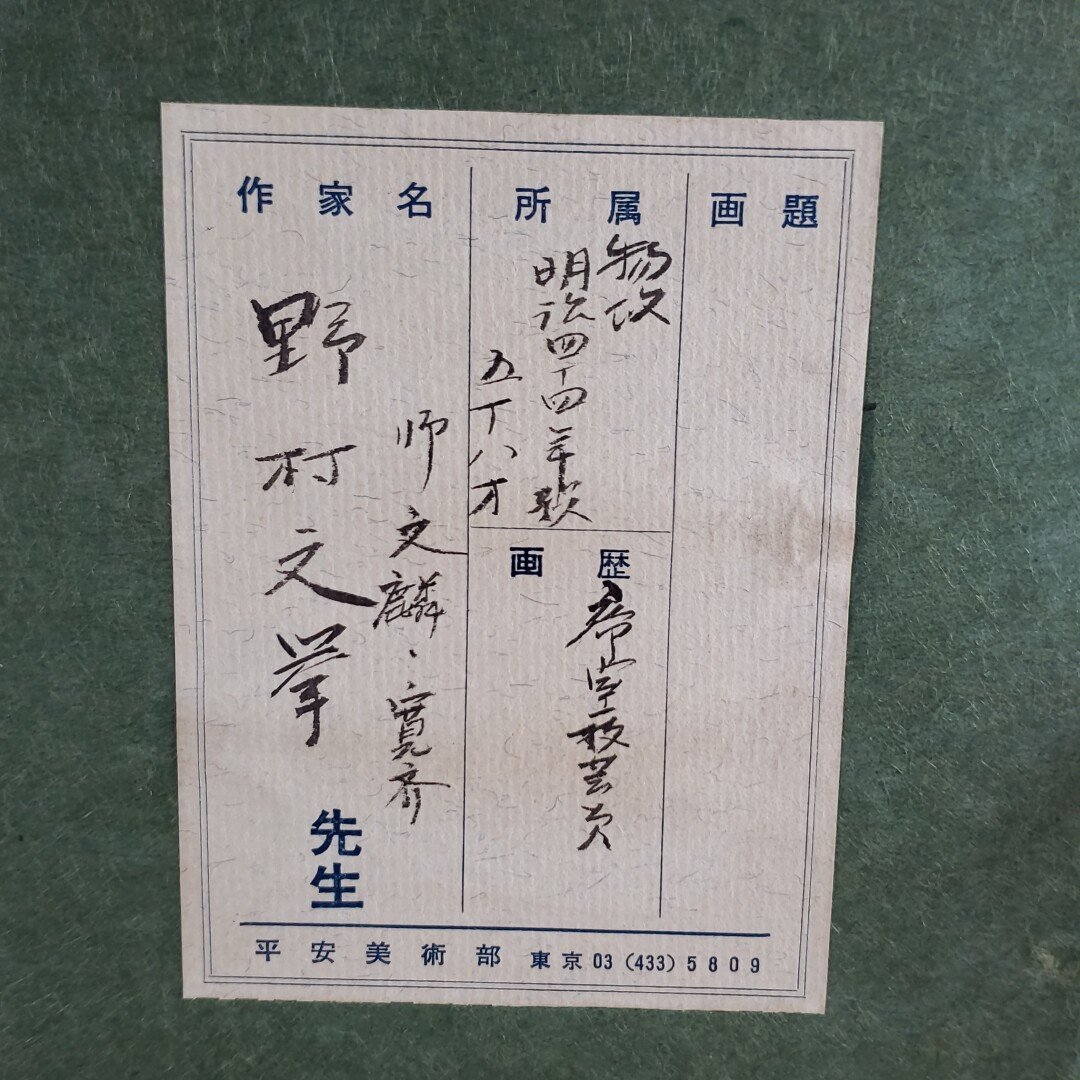 画題
所属
物故
明治四十四年歿
五十八才
画歴
帝室技芸員
作家名
師文麟、寛斉
野村文挙
先生
平安美術部 東京03(433)5809